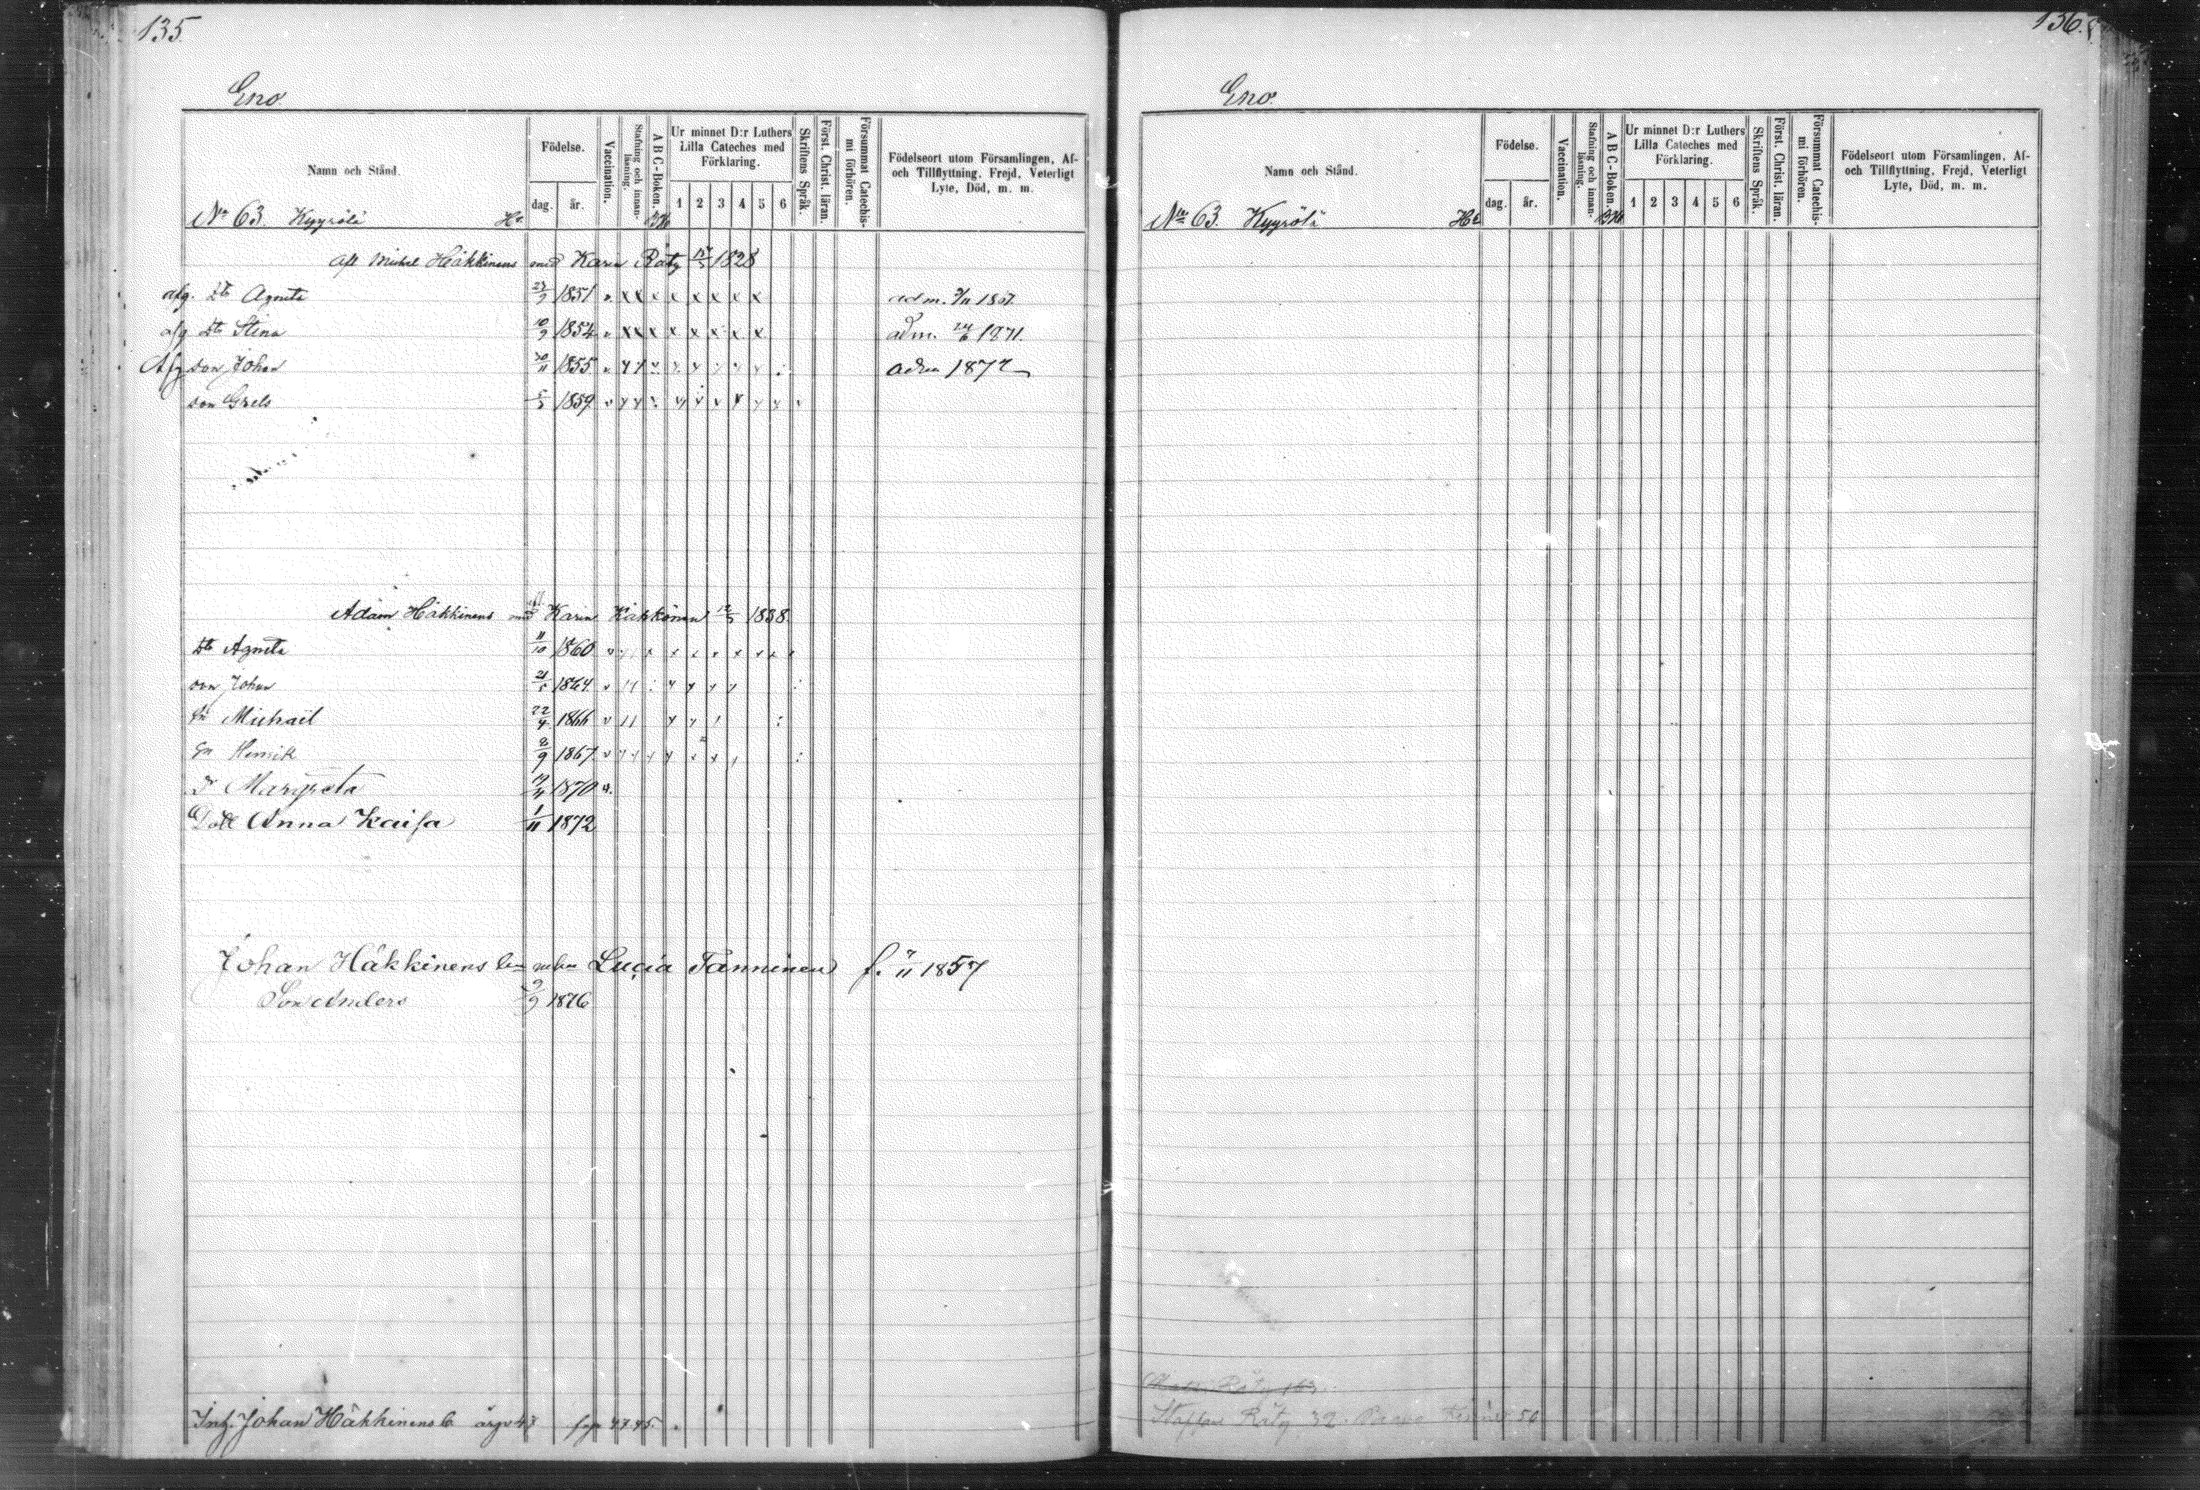 135
Eno
Namn och Stånd.
Födelse.
dag. år.
Vaccination.
Stafning och innan-läsning.
A B C-Boken.
Ur minnet D:r Luthers Lilla Cateches med Förklaring.
1 2 3 4 5 6
Skriftens Språk.
Först. Christ. läran.
Försummat Catechis-mi förhören.
Födelseort utom Församlingen, Af-
och Tillflyttning, Frejd, Veterligt
Lyte, Död, m. m.
No 63. Kyyrölä
Afl Michel Häkkinens med Karin Räty 1828
afg. Dtr Agneta 23/9 1851 adm. 3/11 1867.
afg Dtr Stina 10/9 1854 adm. 24/6 1871.
Afg son Johan 30/11 1855 adm 1872
son Grels 1859
Adam Häkkinens med Karin Kakkonen 1838.
Dtr Agneta 11/10 1860
son Johan 21/5 1864
Sn Michaël 22/4 1866
Sn Henrik 2/9 1867
Dr Margreta 19/4 1870
Dott Anna Kaisa 1/11 1872
Johan Häkkinens Lucia Tanninen f. 7/11 1857
Son Anders 1876
Inh. Johan Häkkinens
136.
Eno.
Namn och Stånd.
Födelse.
dag. år.
Vaccination.
Stafning och innan-läsning.
A B C-Boken.
Ur minnet D:r Luthers Lilla Cateches med Förklaring.
1 2 3 4 5 6
Skriftens Språk.
Först. Christ. läran.
Försummat Catechis-mi förhören.
Födelseort utom Församlingen, Af-
och Tillflyttning, Frejd, Veterligt
Lyte, Död, m. m.
No 63. Kyyrölä
Staffan Räty 32.